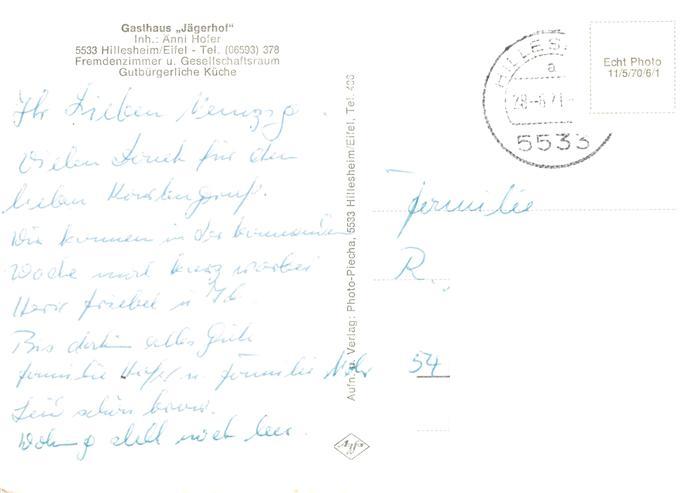 Gasthaus „Jägerhof"
Inh.: Anni Hofer
5533 Hillesheim/Eifel - Tel. (06593) 378
Fremdenzimmer u. Gesellschaftsraum
Gutbürgerliche Küche
Ihr Lieben
Vielen Dank für den
lieben Kartengruß.
Wir kommen in der kommenden
Woche mal kurz vorbei
Herr Friebel u
Bis dahin alles Gute
Familie Hofer u. Familie
Seid schön brav.
Wohng steht noch leer.
Aufn. u. Verlag: Photo-Piecha, 5533 Hillesheim/Eifel, Tel. 403
Agfa
HILLES
a
28-6.71-
5533
Echt Photo
11/5/70/6/1
Familie
R.
54